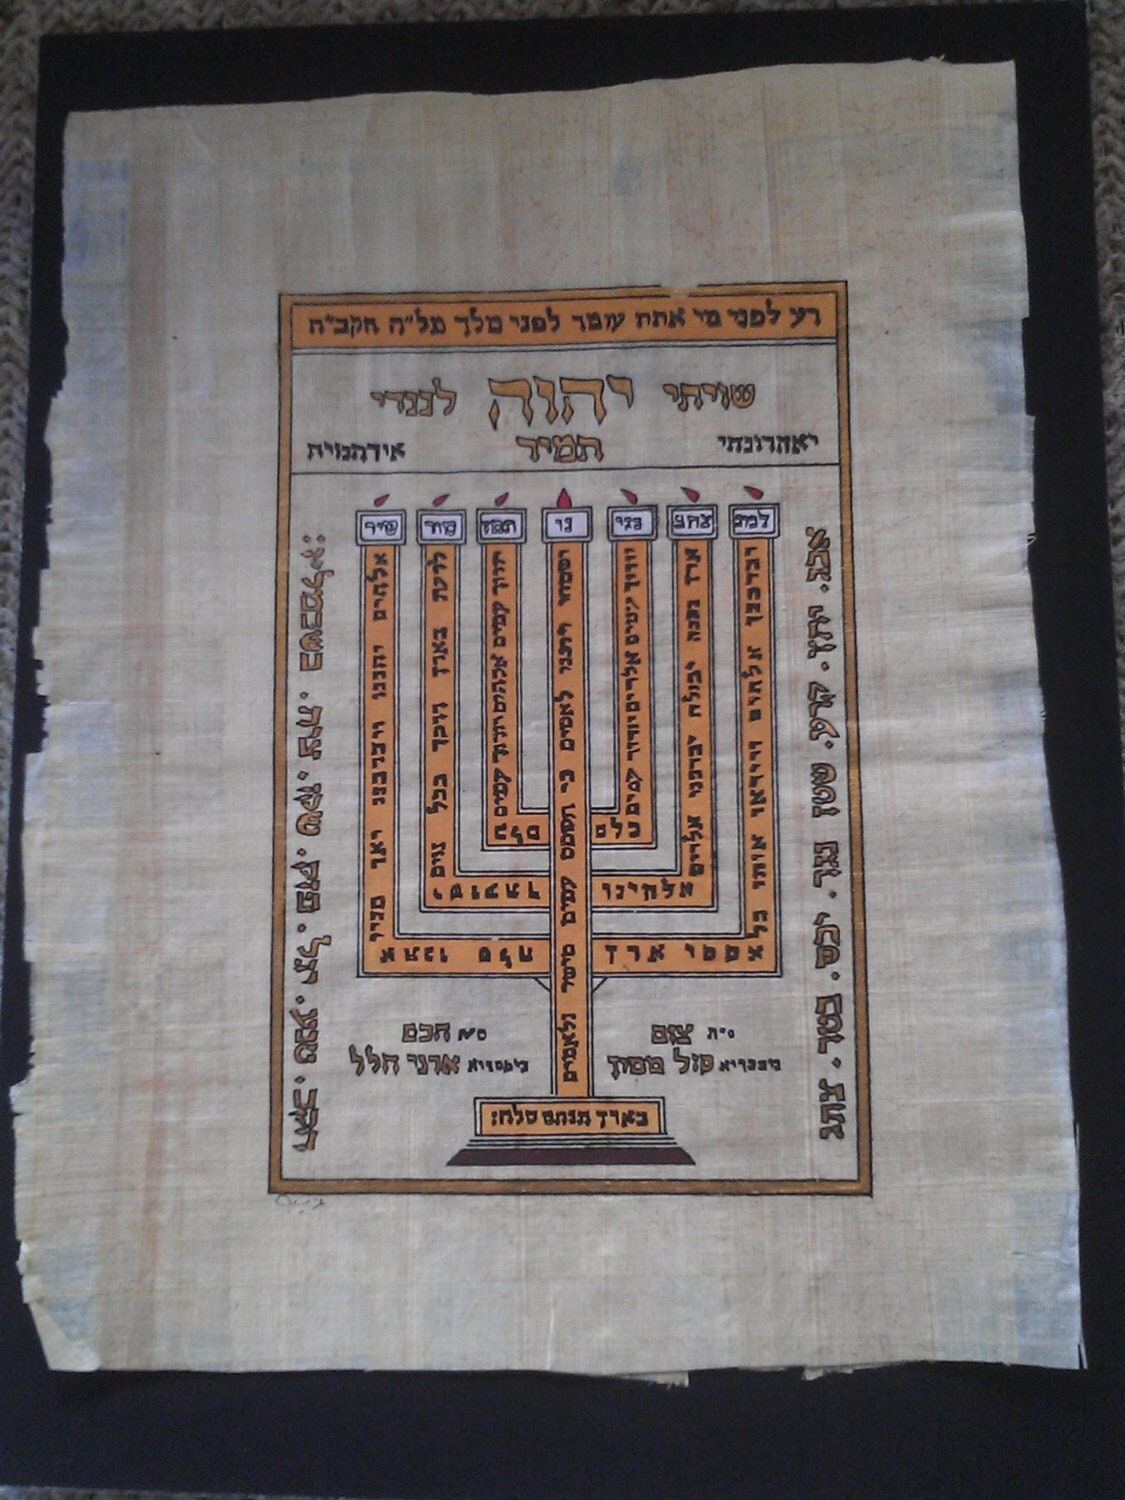 רע לפני מי אתה עומד לפני מלך מל״ה הקב״ה
שויתי יהוה לנגדי
יאהדונהי תמיד אידהנויה
שיר
אלהים יחננו ויברכנו יאר פניו
אתנו סלה
לדעת בארץ דרכך בכל גוים
ישועתך
יודוך עמים אלהים יודוך עמים
כלם
ישמחו וירננו לאמים כי תשפט עמים מישור ולאמים
בארץ תנחם סלה:
יודוך עמים אלהים יודוך עמים
כלם
ארץ נתנה יבולה יברכנו אלהים
אלהינו
יברכנו אלהים וייראו אותו כל
אפסי ארץ
אבג. יתץ. קרע. שטן נגד. יכש. בטר. צתג
חקב. טנע. יגל. פזק. שקו. צית. בשכמל״ו:
צום
קול ממון
חכם
אדני הלל